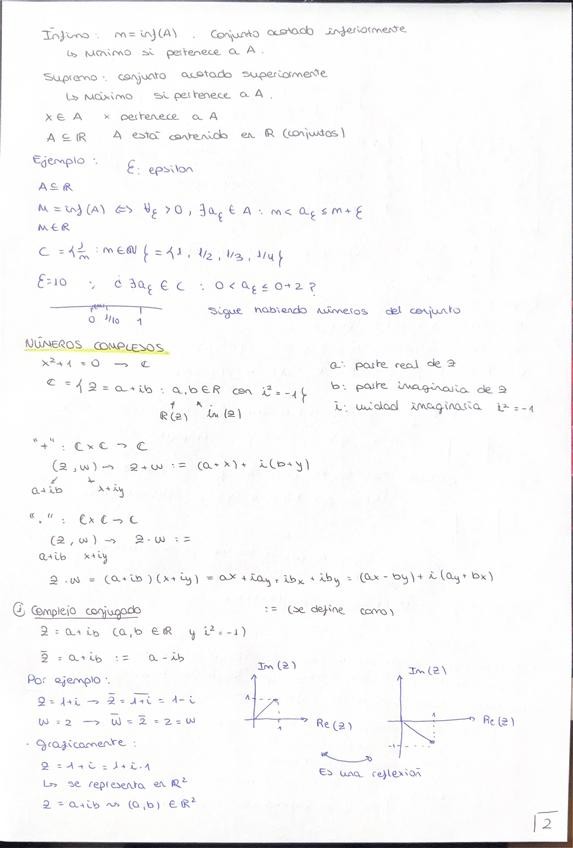 Ínfimo: m=inf(A). Conjunto acotado inferiormente
↳ Mínimo si pertenece a A.
Supremo: conjunto acotado superiormente
↳ Máximo si pertenece a A.
x ∈ A x pertenece a A
A ⊆ ℝ A está contenido en ℝ (conjuntos)
Ejemplo: Ɛ: epsilon
A ⊆ ℝ
m = inf(A) ⟺ ∀ε > 0, ∃aε ∈ A : m < aε ≤ m + ε
m ∈ ℝ
C = {1/m : m ∈ ℕ} = {1, 1/2, 1/3, 1/4}
Ɛ=10 : ¿∃aε ∈ C : 0 < aε ≤ 0+2?
0 1/10 1 Sigue habiendo números del conjunto
NÚMEROS COMPLEJOS
x²+1=0 → ℂ a: parte real de z
ℂ = {z = a+ib : a,b ∈ ℝ con i² = -1} b: parte imaginaria de z
R(z) im(z) i: unidad imaginaria i² = -1
"+" : ℂ x ℂ → ℂ
(z, w) → z+w := (a+x) + i(b+y)
a+ib x+iy
"·" : ℂ x ℂ → ℂ
(z, w) → z·w :=
a+ib x+iy
z·w = (a+ib)(x+iy) = ax + iay + ibx + iby = (ax - by) + i(ay + bx)
① Complejo conjugado := (se define como)
z = a+ib (a,b ∈ ℝ y i² = -1)
z̄ = a+ib := a-ib
Por ejemplo:
z = 1+i → z̄ = 1+i = 1-i
w = 2 → w̄ = 2̄ = 2 = w
· Graficamente:
z = 1+i = 1+i·1
↳ se representa en ℝ²
z = a+ib ~> (a,b) ∈ ℝ²
Im(z)
1
1
Re(z)
Im(z)
1
-1
Re(z)
Es una reflexión
2